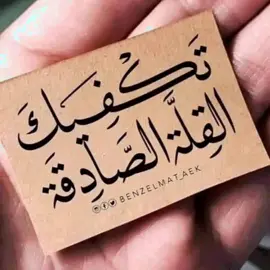 تكفيك
القِلَّة الصَّادِقَة
BENZELMAT_AEK